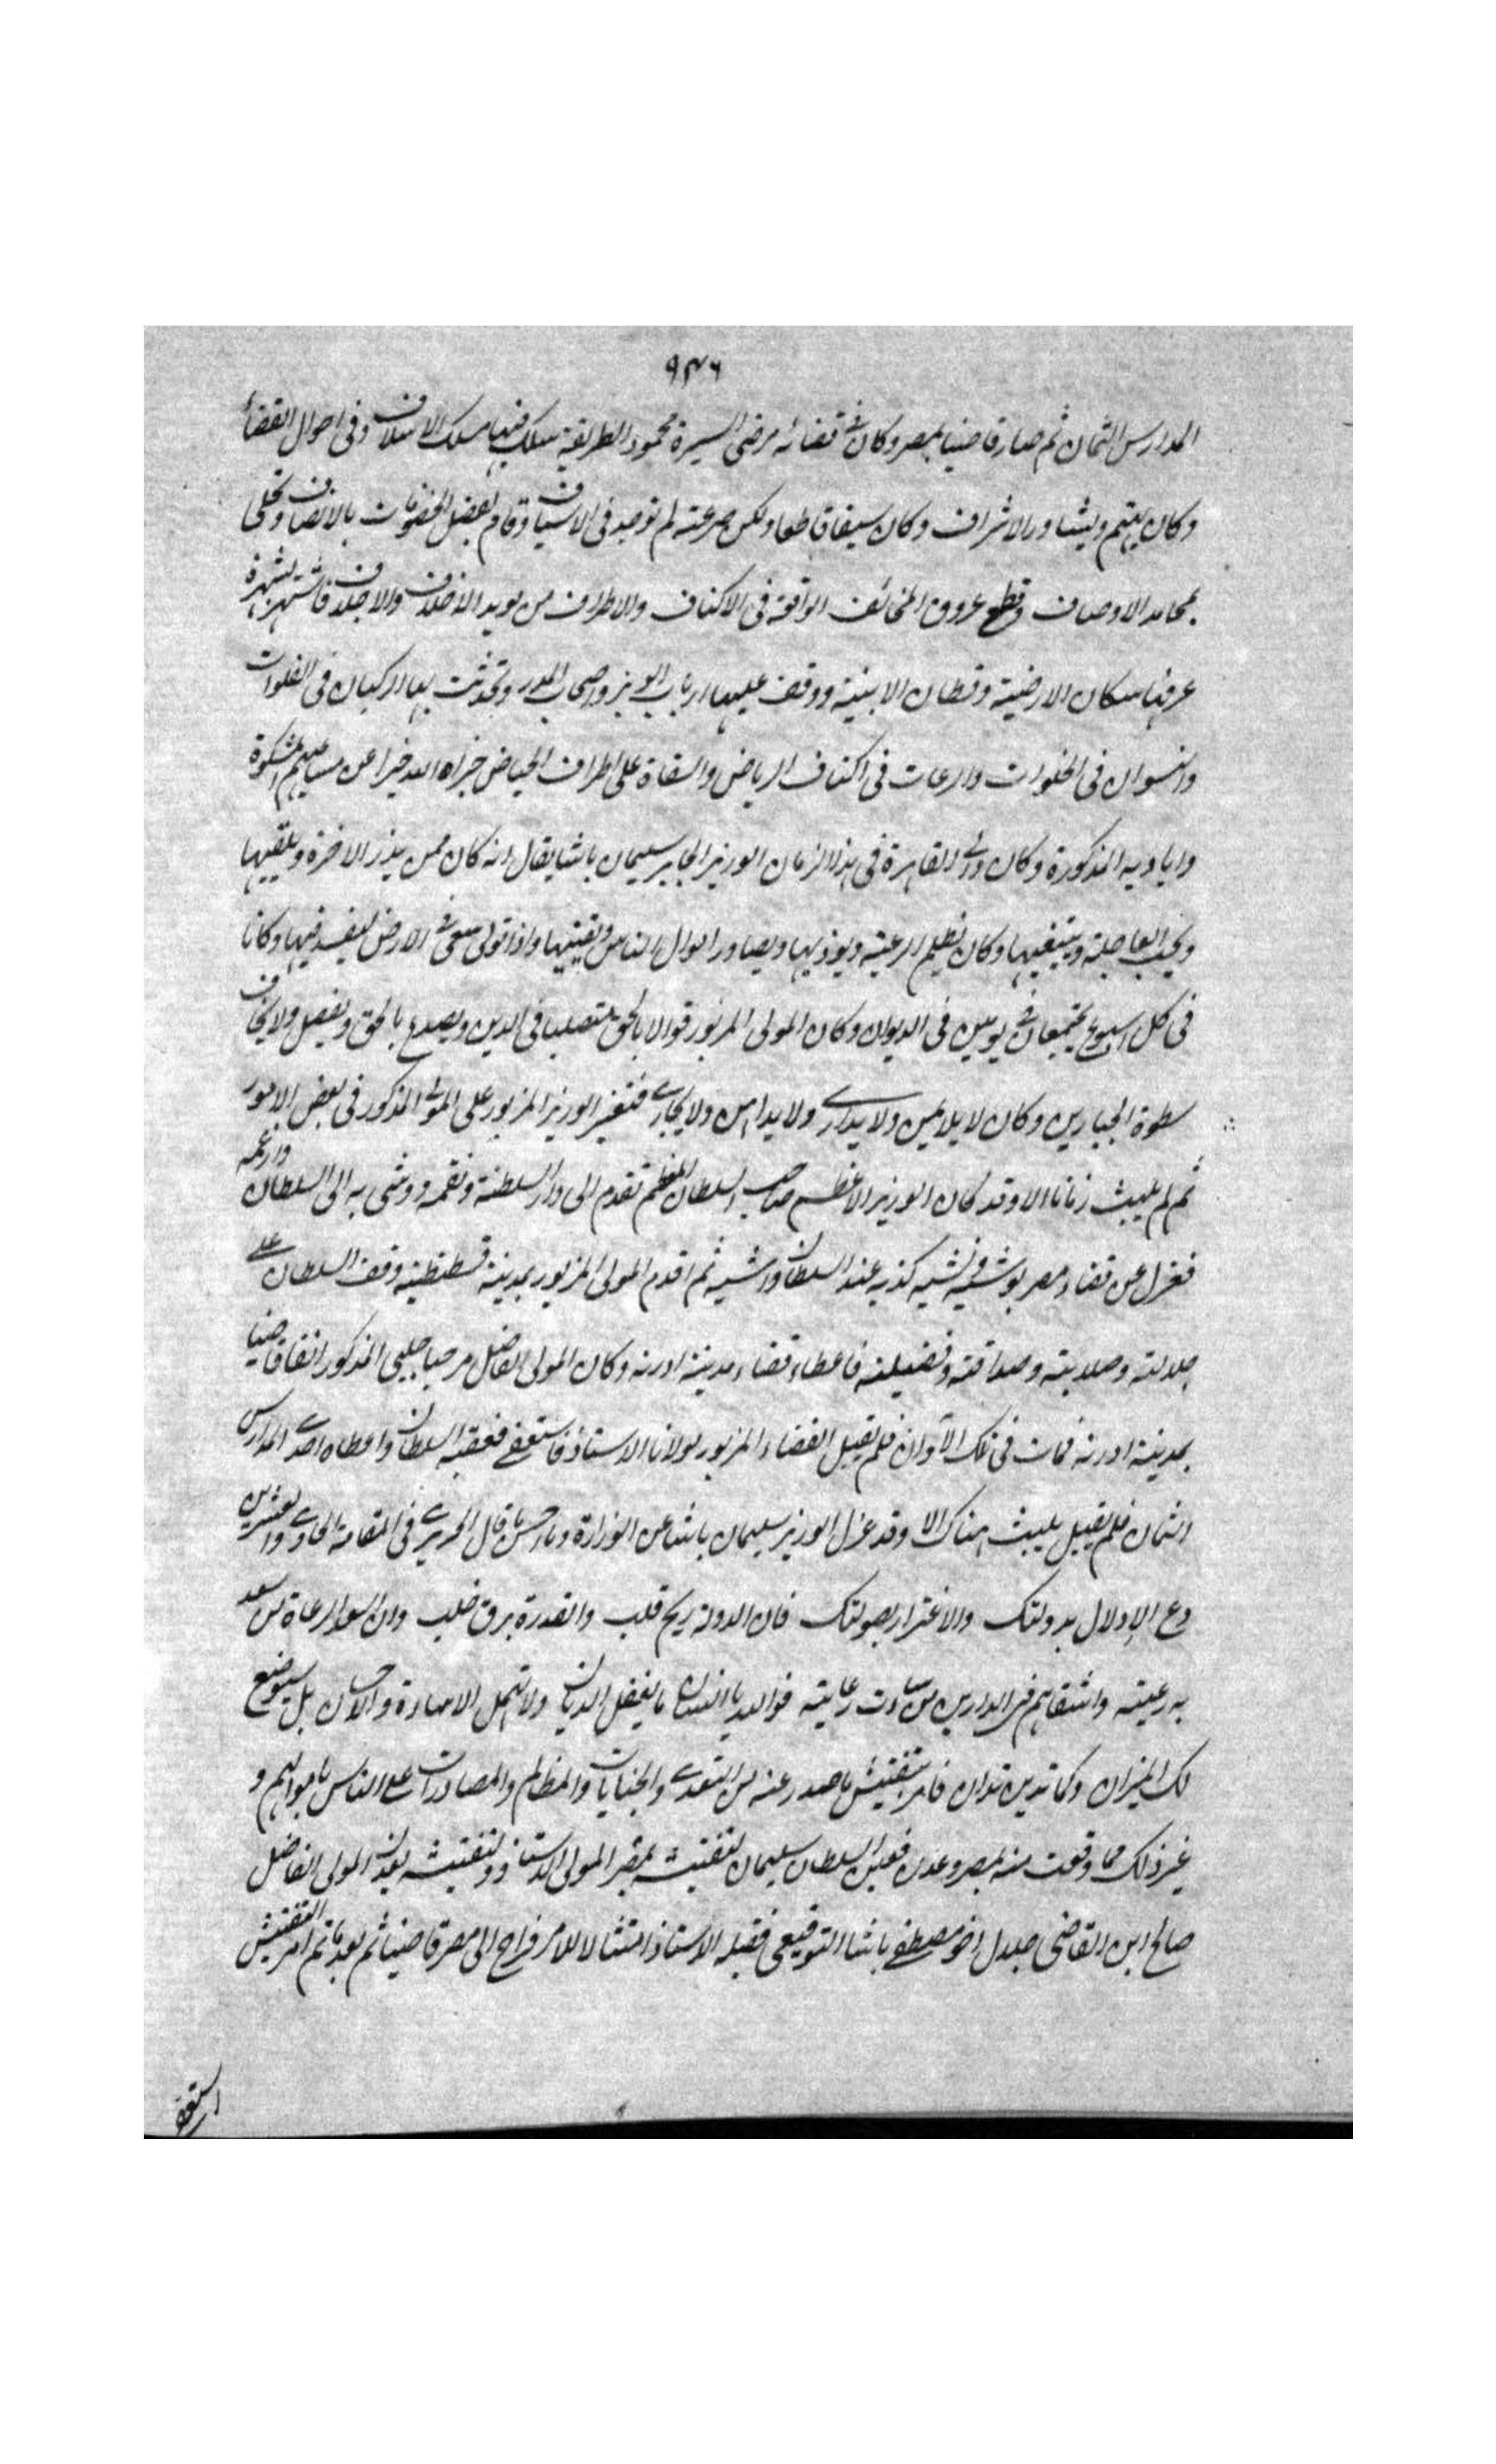 ٩٣٦
المدارس الثمان ثم صار قاضيا بمصر وكان فى قضائه مرضى السيرة محمود الطريقة سلك فيها مسلك الاسلاف وفى احوال القضاء
وكان يهتم ويشاور الاشراف وكان سيفا قاطعا ولكن صرعته لم توجد فى الاسياف وقام بفصل الخصومات بالانصاف وتحلى
بمحامد الاوصاف وقطع عروق المخائف الواقعة فى الاكناف والاطراف من يويد الاخلاف والاجلاف فاشتهر شهرة
عرفها سكان الارضية وقطان الابنية ووقف عليها ارباب الوبر واصحاب المدر وتحدثت بها الركبان فى الفلوات
والنسوان فى الخلوات والرعات فى اكناف الرياض والسقاة على اطراف الحياض جزاه الله خيرا عن مساعيهم المشكورة
واياديه المذكورة وكان والى القاهرة فى هذا الزمان الوزير الجابر سليمان باشا يقال انه كان ممن يذر الاخرة ويلقيها
ويحب العاجلة ويبتغيها وكان يظلم الرعية ويوذيها ويصادر اموال الناس ويقتنيها واذا تولى سعى فى الارض ليفسد فيها وكانا
فى كل اسبوع يجتمعان فى يومين فى الديوان وكان المولى المزبور قوالا بالحق متصلبا فى الدين ويصدع بالحق ويفصل ولا يخاف
سطوة الجبارين وكان لا يلاين ولا يدارى ولا يداهن ولا يجارى فتغير الوزير المزبور على المولى المذكور فى بعض الامور
ثم لم يلبث زمانا الا وقد كان الوزير الاعظم صاحب السلطان المعظم تقدم الى دار السلطنة ونقمه ووشى به الى السلطان وارغمه
فعزل عن قضاء مصر بوشى فيه كذبه عند السلطان واشيه ثم اقدم المولى المزبور بمدينة قسطنطينية وقف السلطان على
جلالته وصلابته وصداقته وفضيلته فاعطاه قضاء مدينة ادرنه وكان المولى الفاضل مرحبا جلبى المذكور انفا قاضيا
بمدينة ادرنه فمات فى تلك الآوان فلم يقبل القضاء المزبور مولانا الاستاذ فاستعفى فعقبه السلطان واعطاه احدى المدارس
الثمان فلم يقبل يلبث هناك الا وقد عزل الوزير سليمان باشا عن الوزارة وما احسن ما قال الحريرى فى المقامة الحادى والعشرين
دع الإدلال بدولتك والاغترار بصولتك فان الدولة ريح قلب والقدرة برق خلب وان اسعد الرعاة من سعد
به رعيته واشقاهم فى الدارين من ساءت رعايته فوالله يا انسان ما يغفل الديان ولا تهمل الاساءة والاحسان بل سيوضع
لك الميزان وكما تدين تدان فامر بتفتيش ما صدر عنه من التعدى والجنايات والمظالم والمصادرات على الناس باموالهم و
غير ذلك مما وقعت منه بمصر وعدن فعين السلطان سليمان لتفتيشه بمصر المولى الاستاذ ولتفتيشه بعدن المولى الفاضل
صالح ابن القاضى جلال اخو مصطفى باشا التوقيعى فقبله الاستاذ امتثالا للامر فراح الى مصر قاضيا ثم بعد ما تم امر التفتيش
استعفى